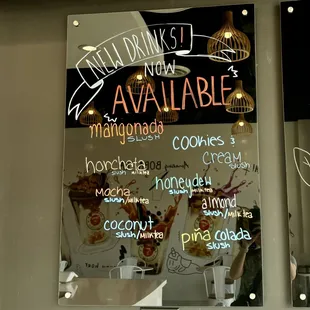 NEW DRINKS!
NOW
AVAILABLE
mangonada
SLUSH
COOKIES &
CREAM
slush
horchata
slush/milktea
honeydew
slush/milktea
Mocha
slush/milktea
almond
slush/milktea
coconut
slush/milktea
piña colada
slush